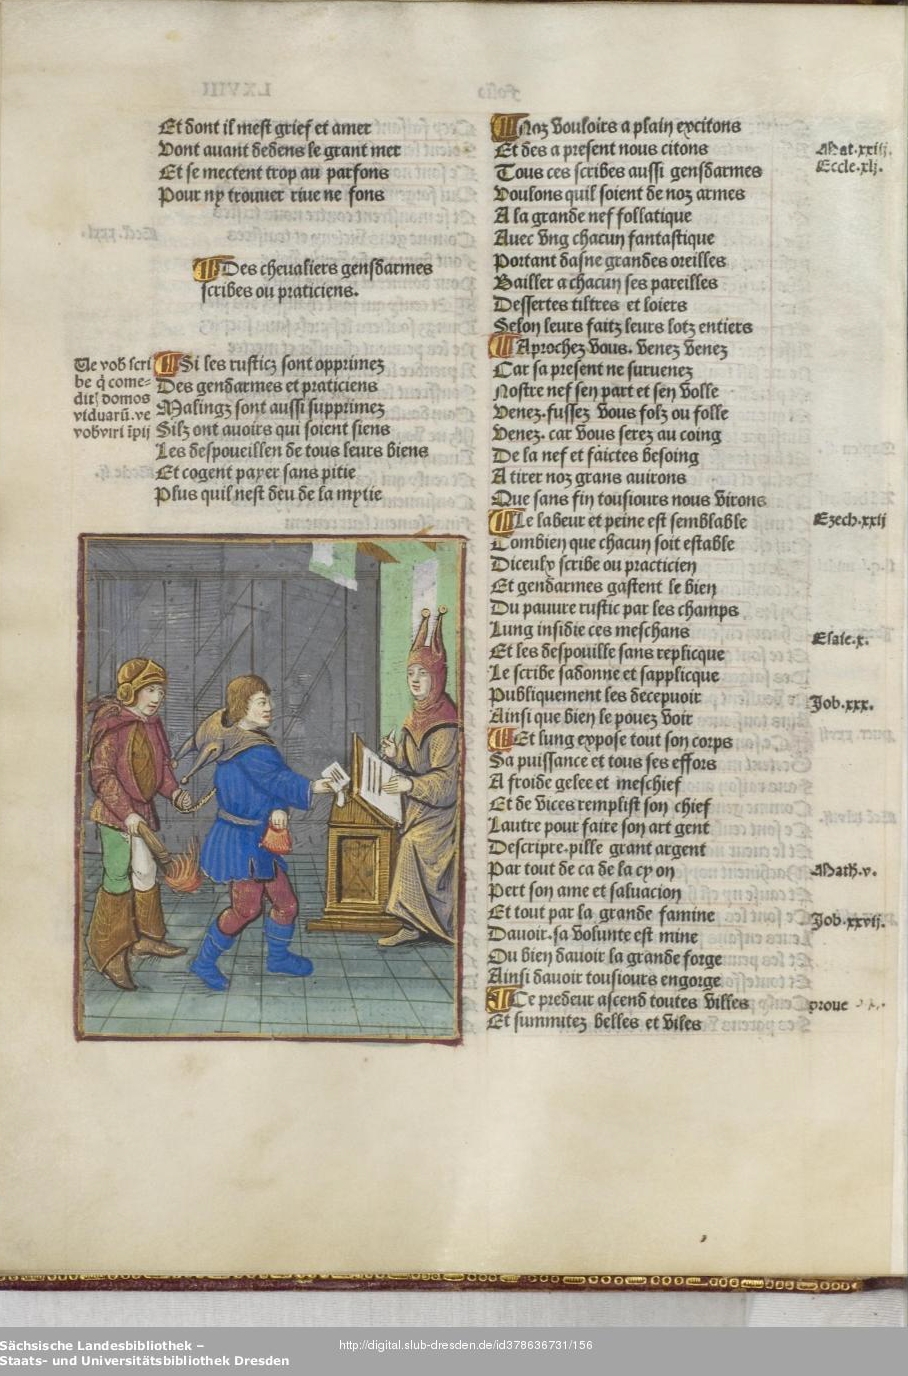 Et dont il mest grief et amer
Vont auant dedens le grant mer
Et se mectent trop au parfons
Pour ny trouuer riue ne fons
Des cheualiers gensdarmes
scribes ou praticiens.
Ue vob scri
be q̇ come-
dit̕ domos
viduarū. ve
vob viri īpij
Si les rusticz sont opprimez
Des gendarmes et praticiens
Malingz sont aussi supprimez
Silz ont auoirs qui soient siens
Les despoueillen de tous leurs biens
Et cogent payer sans pitie
Plus quil nest deu de la mytie
Noz vouloirs a plain excitons
Et des a present nous citons
Tous ces scribes aussi gensdarmes
Voulons quil soient de noz armes
A la grande nef follatique
Auec vng chacun fantastique
Portant dasne grandes oreilles
Bailler a chacun ses pareilles
Dessertes tiltres et loiers
Selon leurs faitz leurs lotz entiers
Aprochez vous. venez venez
Car sa present ne suruenez
Nostre nef sen part et sen volle
Venez. fussez vous folz ou folle
Venez. car vous serez au coing
De la nef et faictes besoing
A tirer noz grans auirons
Que sans fin tousiours nous virons
Le labeur et peine est semblable
Combien que chacun soit estable
Diceulx scribe ou practicien
Et gendarmes gastent le bien
Du pauure rustic par les champs
Lung insidie ces meschans
Et les despouille sans replicque
Le scribe sadonne et sapplicque
Publiquement les decepuoir
Ainsi que bien le pouez voir
Et lung expose tout son corps
Sa puissance et tous ses effors
A froide gelee et meschief
Et de vices remplist son chief
Lautre pour faire son art gent
Descripre. pille grant argent
Par tout de ca de la cy on
Pert son ame et saluacion
Et tout par la grande famine
Dauoir. sa volunte est mine
Ou bien dauoir la grande forge
Ainsi dauoir tousiours engorge
Ce predeur ascend toutes villes
Et summitez belles et viles
Mat. xxiij.
Eccle. xlj.
Ezech. xxij
Esaie. x.
Job. xxx.
Math. v.
Job. xxvij.
proue
Sächsische Landesbibliothek –
Staats- und Universitätsbibliothek Dresden
http://digital.slub-dresden.de/id378636731/156